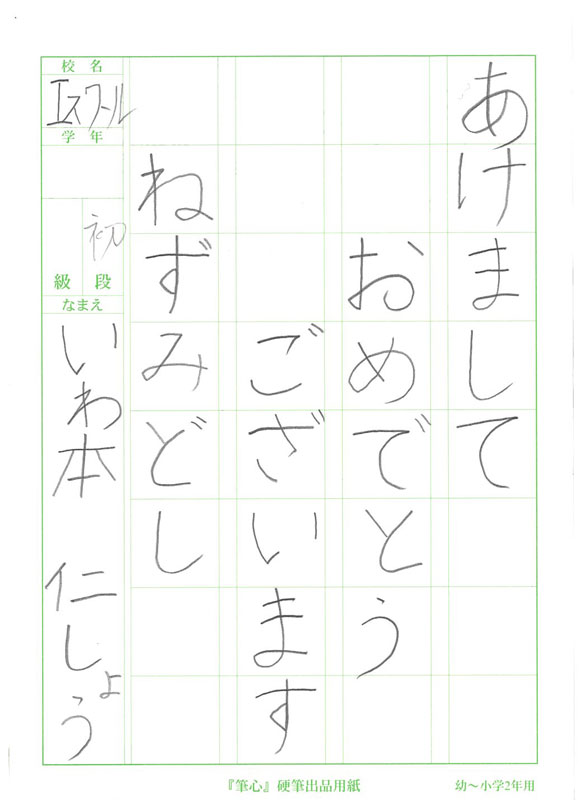 あけまして
おめでとう
ございます
ねずみどし
校名
エスワール
学年
初
級段
なまえ
いわ本 仁しょう
『筆心』硬筆出品用紙
幼～小学2年用